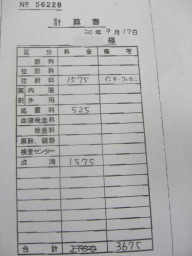 № 56228
計算書
20年9月17日
様
区分 料金 備考
診料
往診料
注射料 1575
薬 内服
剤 外用
処置料 525
血液検査料
検査料
麻酔、
検査センター
点滴 1575
合計 2100 3675